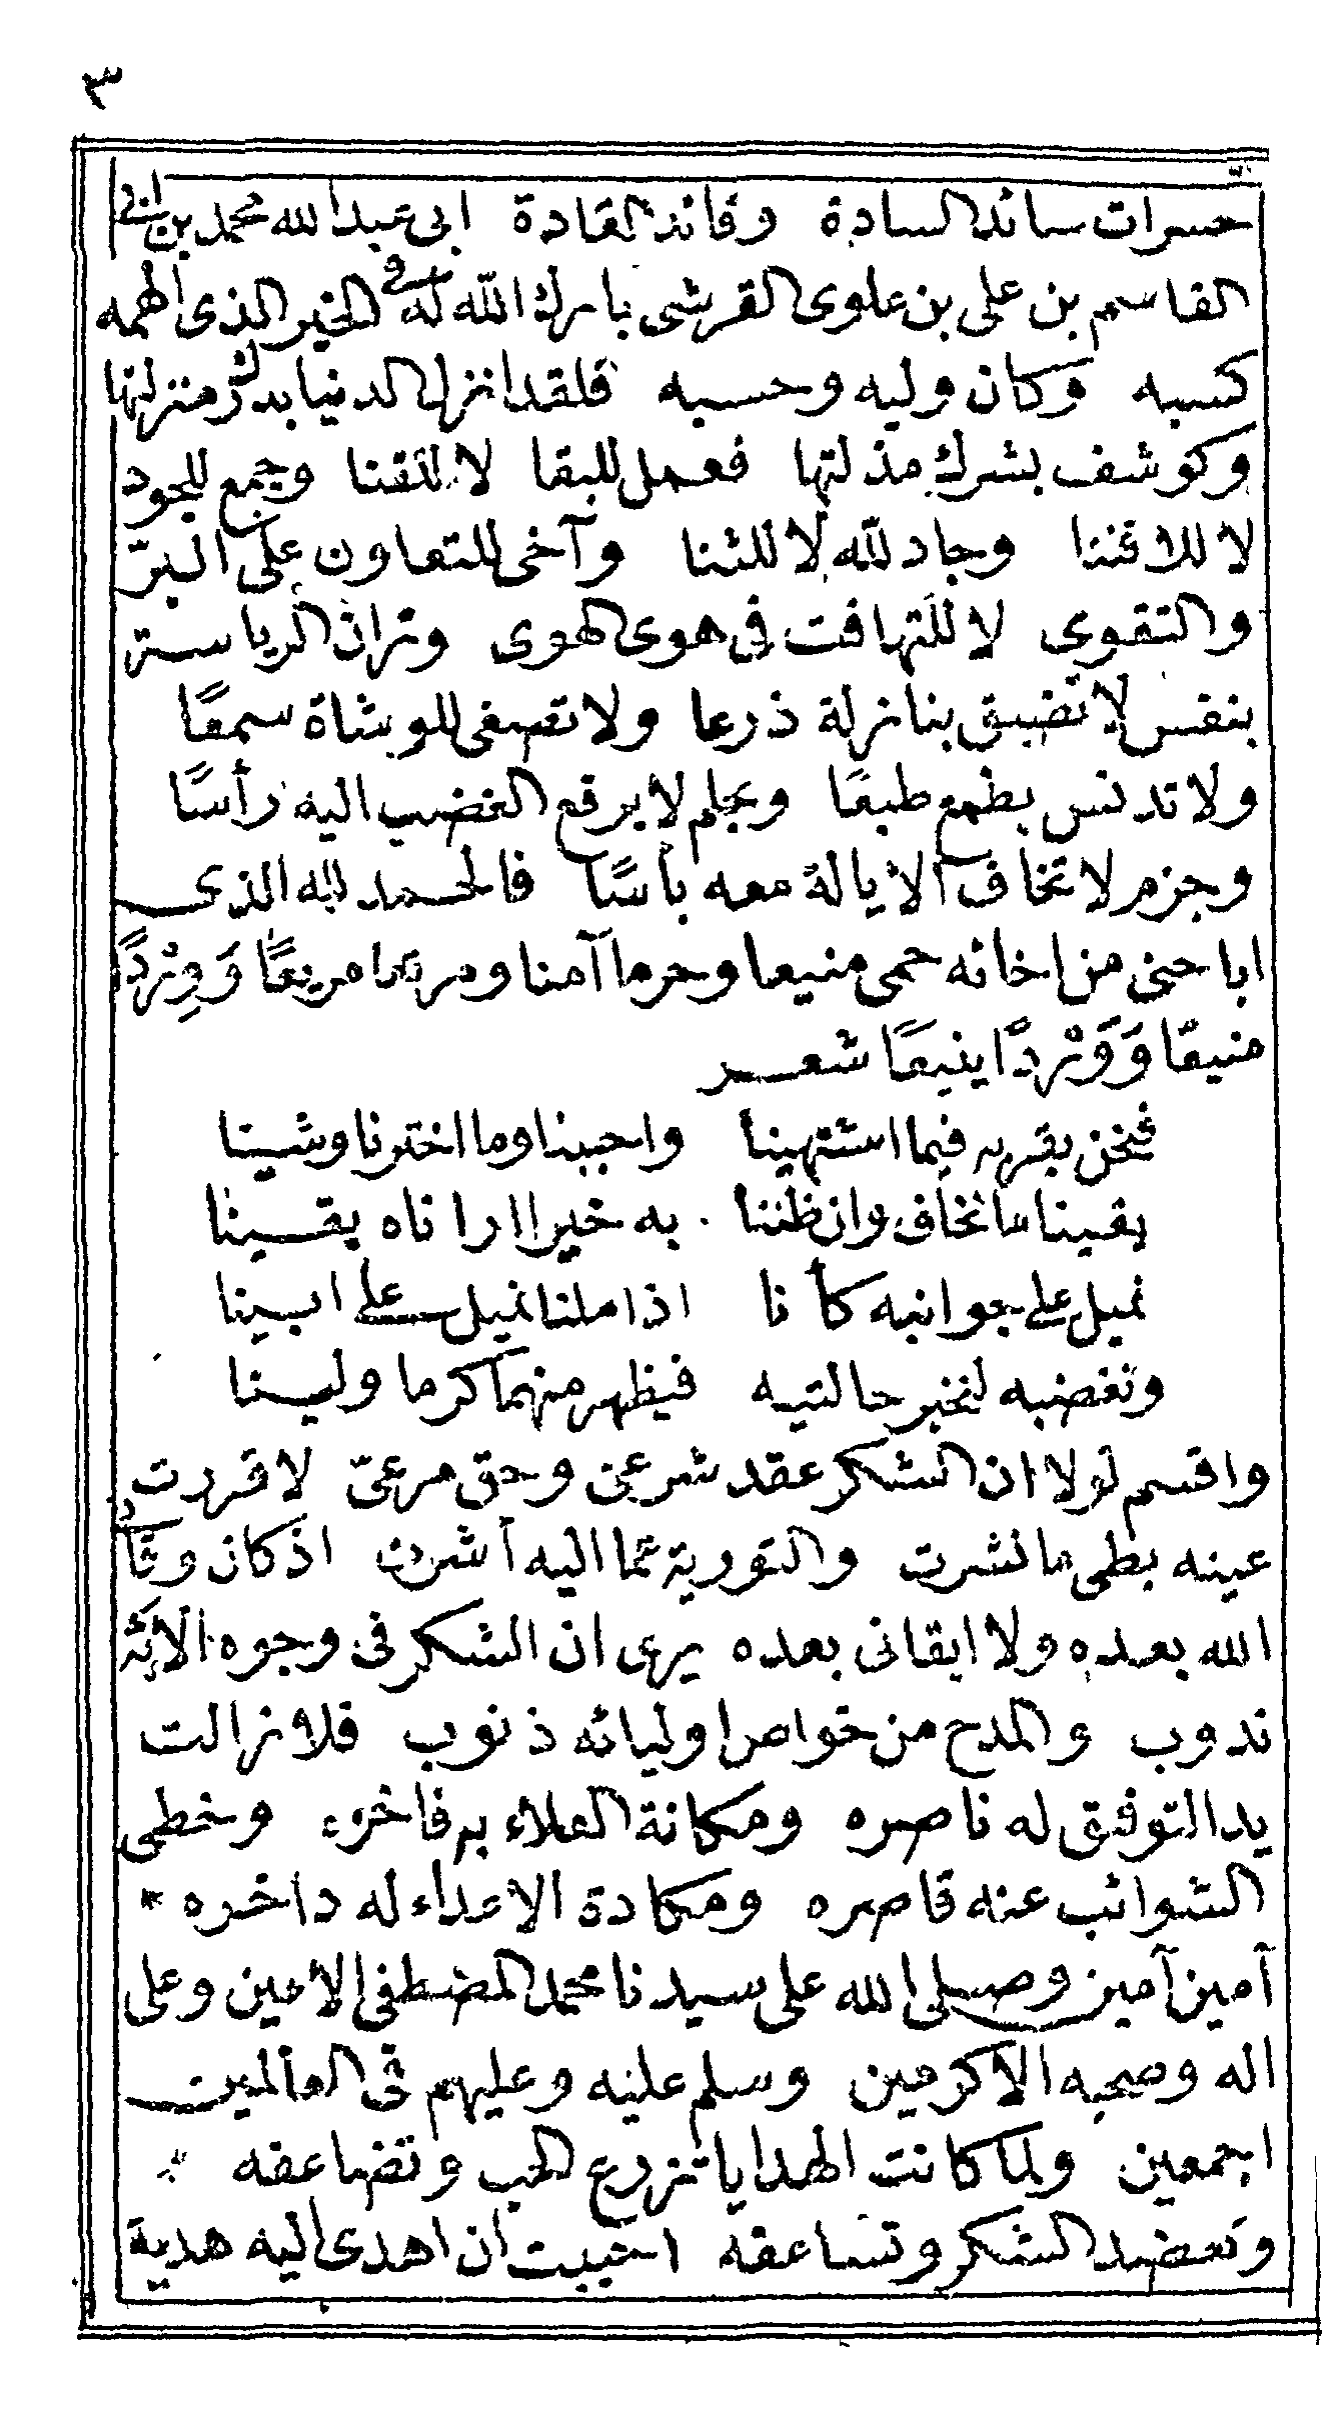 ٣
حسرات سائد السادة وقائد القادة ابى عبد الله محمد بن ابى
القاسم بن على بن علوى القرشى بارك الله له فى الخير الذى الهمه
كسبه وكان وليه وحسبه فلقد انزل الدنيا بدرك منزلتها
وكوشف بشرك مذلتها فعمل للبقا لا للفنا وجمع للجود
لا للاقتنا وجاد لله لا للثنا وآخى للتعاون على البرّ
والتقوى لا للتهافت فى هوى الهوى وتراث الرياسة
بنفس لا تضيق بنازلة ذرعا ولا تصغى للوشاة سمعًا
ولا تدنس بطمع طبعًا وبحلم لا يرفع الغضب اليه رأسًا
وحزم لا تخاف الايالة معه بأسًا فالحمد لله الذى
اباحنى من اخائه حمى منيعا وحرما آمنا ومربدا مريعًا وَوِرْدًا
منيعًا وَوَرْدًا ينيعًا شعر
فنحن بقربه فيما اشتهينا واحببنا وما اخترنا وشينا
يقينا ما نخاف وان ظننا به خيرا اراناه يقينا
نميل على جوانبه كأنا اذا ملنا نميل على ابينا
ونغضبه لنخبر حالتيه فيظهر منهما كرما ولينا
واقسم لولا ان الشكر عقد شرعى وحق مرعىّ لا قررت
عينه بطى ما نشرت والتورية عما اليه أشرت اذ كان وقأ
الله بعده ولا ابقانى بعده يرى ان الشكر فى وجوه الائه
ندوب والمدح من خواص اوليائه ذنوب فلا زالت
يد التوفيق له ناصره ومكانة العلاء به فاخره وخطى
الشوائب عنه قاصره ومكادة الاعداء له داخره *
آمين آمين وصلى الله على سيدنا محمد المصطفى الامين وعلى
اله وصحبه الاكرمين وسلم عليه وعليهم فى العالمين
اجمعين ولما كانت الهدايا تزرع الحب وتضاعفه
وتعضد الشكر وتساعفه احببت ان اهدى اليه هدية